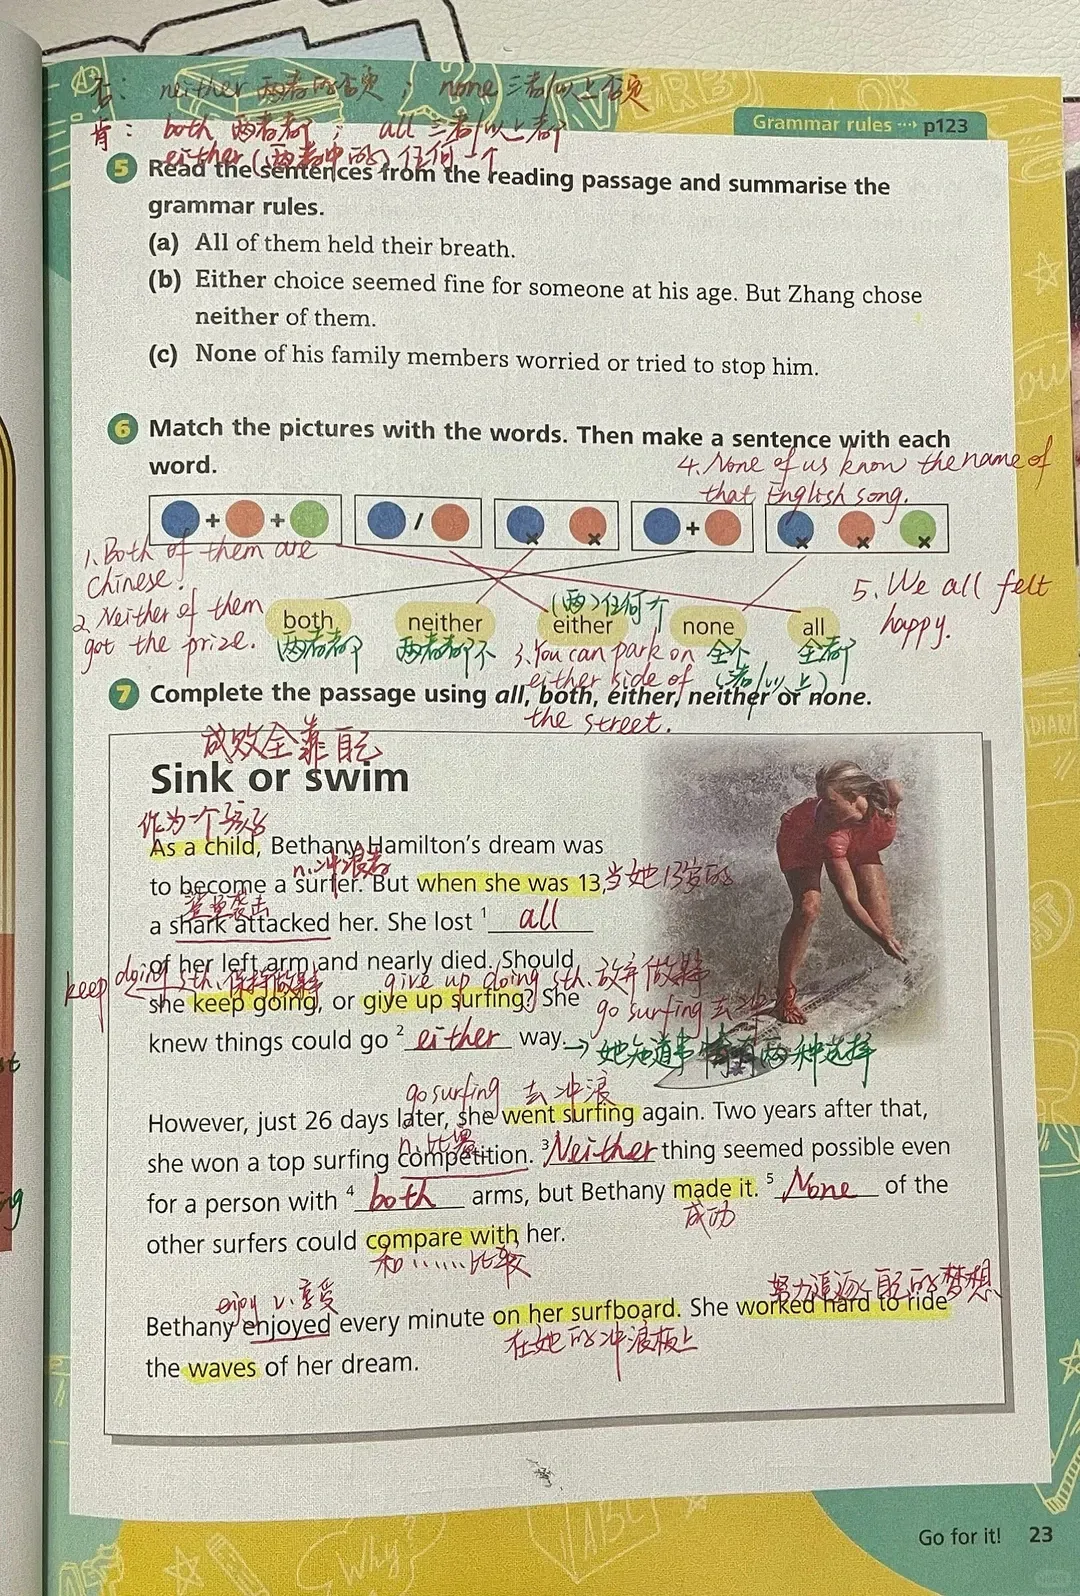 否: neither 两者的否定; none 三者/以上否定
肯: both 两者都; all 三者/以上都
either(两者中的)任何一个
Grammar rules ··· p123
5 Read the sentences from the reading passage and summarise the
grammar rules.
(a) All of them held their breath.
(b) Either choice seemed fine for someone at his age. But Zhang chose
neither of them.
(c) None of his family members worried or tried to stop him.
6 Match the pictures with the words. Then make a sentence with each
word.
4. None of us know the name of
that English song.
+ + / + 
1. Both of them are
Chinese.
2. Neither of them
got the prize.
5. We all felt
happy.
(两)任何一个
both neither either none all
两者都 两者都不 全不 全都
(三者/以上)
3. You can park on
either side of
the street.
7 Complete the passage using all, both, either, neither or none.
成败全靠自己
Sink or swim
作为一个孩子
As a child, Bethany Hamilton's dream was
n.冲浪者
to become a surfer. But when she was 13, 当她13岁时
鲨鱼袭击
a shark attacked her. She lost 1 all
of her left arm and nearly died. Should
keep doing sth. 保持做某事 give up doing sth. 放弃做某事
she keep going, or give up surfing? She
go surfing 去冲浪
knew things could go 2 either way. → 她知道事情有两种选择
go surfing 去冲浪
However, just 26 days later, she went surfing again. Two years after that,
n.比赛
she won a top surfing competition. 3 Neither thing seemed possible even
for a person with 4 both arms, but Bethany made it. 5 None of the
成功
other surfers could compare with her.
和……比较
enjoy v.享受
努力追逐自己的梦想
Bethany enjoyed every minute on her surfboard. She worked hard to ride
在她的冲浪板上
the waves of her dream.
Go for it! 23